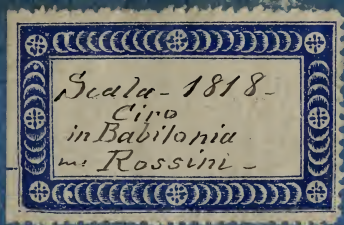 Scala - 1818 -
Ciro
in Babilonia
m: Rossini -